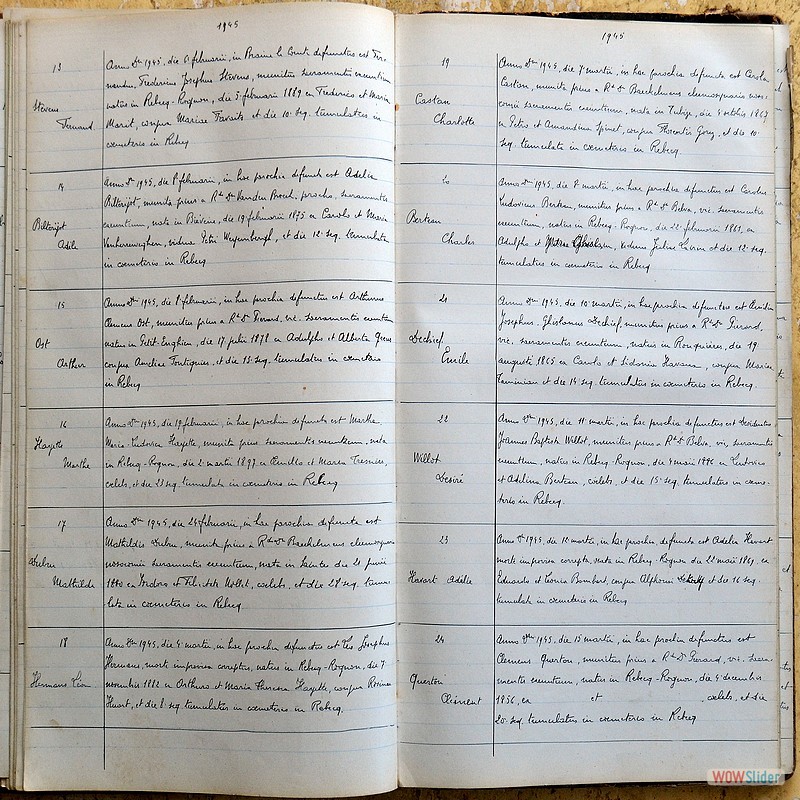 1945
13
Stevens
Fernand
Anno Dni 1945, die 6 februarii, in Braine le Comte defunctus est Fer-
nandus, Fredericus Josephus Stevens, munitus sacramentis exeuntium
natus in Rebecq-Rognon, die 5 februarii 1889 ex Frederico et Maria
conjux Mariae et die 10 seq. tumulatus in
coemeterio in Rebecq
14
Adile
Anno Dni 1945, die 8 februarii, in hac parochia defuncta est Adelia
munita prius a Rdo Dno Vanden Bosch, parocho, sacramentis
exeuntium, nata in Bievene, die 19 februarii 1875 ex Carolo et Maria
vidua Petri et die 12 seq. tumulata
in coemeterio in Rebecq
15
Ost
Arthur
Anno Dni 1945, die 9 februarii, in hac parochia defunctus est Arthurus
Clemens Ost, munitus prius a Rdo Dno Gerard, vic. sacramentis exeuntium
natus in Petit-Enghien, die 17 julii 1878 ex Adolpho et Alberta
conjux Aureliae et die 13 seq. tumulatus in coemeterio
in Rebecq
16
Hayette
Marthe
Anno Dni 1945, die 19 februarii, in hac parochia defuncta est Martha
Maria Ludovica Hayette, munita prius sacramentis exeuntium, nata
in Rebecq-Rognon, die 2 martii 1897 ex Camillo et Maria
celebs, et die 23 seq. tumulata in coemeterio in Rebecq
17
Mathilde
Anno Dni 1945, die 24 februarii, in hac parochia defuncta est
Mathildis munita prius a Rdo Dno Baeckelmans
sacramentis exeuntium, nata in die 21 junii
1880 ex Isidoro et Felicitate Mollet, celebs, et die 27 seq. tumu-
lata in coemeterio in Rebecq
18
Hermans Léon
Anno Dni 1945, die 4 martii, in hac parochia defunctus est Leo Josephus
Hermans, morte improvisa correptus, natus in Rebecq-Rognon, die 7
novembris 1882 ex Arthuro et Maria Theresia Hayette, conjux Rosinae
et die 8 seq. tumulatus in coemeterio in Rebecq.
1945
19
Castan
Charlotte
Anno Dni 1945, die 7 martii, in hac parochia defuncta est Carola
Castan, munita prius a Rdo Dno Baeckelmans
sacramentis exeuntium, nata in Tubize, die 4 octobris 1867
ex Petro et Amandina Spinet, conjux Florentii et die 10
seq. tumulata in coemeterio in Rebecq.
20
Berteau
Charles
Anno Dni 1945, die 8 martii, in hac parochia defunctus est Carolus
Ludovicus Berteau, munitus prius a Rdo Dno vic. sacramentis
exeuntium, natus in Rebecq-Rognon, die 22 februarii 1861, ex
Adolpho et Ghislain, et die 12 seq.
tumulatus in coemeterio in Rebecq
21
Dechief
Emile
Anno Dni 1945, die 10 martii, in hac parochia defunctus est
Josephus, Ghislenus Dechief, munitus prius a Rdo Dno Gerard,
vic. sacramentis exeuntium, natus in Ronquières, die 19
augusti 1865 ex Carolo et Sidonia conjux Mariae
et die 14 seq. tumulatus in coemeterio in Rebecq.
22
Willot
Désiré
Anno Dni 1945, die 11 martii, in hac parochia defunctus est Desideratus
Joannes Baptista Willot, munitus prius a Rdo D vic. sacramentis
exeuntium, natus in Rebecq-Rognon, die 4 maii ex Ludovico
et Adelina Berteau, celebs, et die 15 seq. tumulatus in coeme-
terio in Rebecq.
23
Havart Adèle
Anno Dni 1945, die 12 martii, in hac parochia defuncta est Adelia Havart
morte improvisa correpta, nata in Rebecq-Rognon die 22 maii 1869, ex
Eduardo et Leonia conjux Alphonsi et die 16 seq.
tumulata in coemeterio in Rebecq
24
Querton
Clément
Anno Dni 1945, die 15 martii, in hac parochia defunctus est
Clemens Querton, munitus prius a Rdo D Gerard, vic. sacra-
mentis exeuntium, natus in Rebecq-Rognon, die 4 decembris
1856, ex et celebs, et die
20 seq. tumulatus in coemeterio in Rebecq
WOWSlider